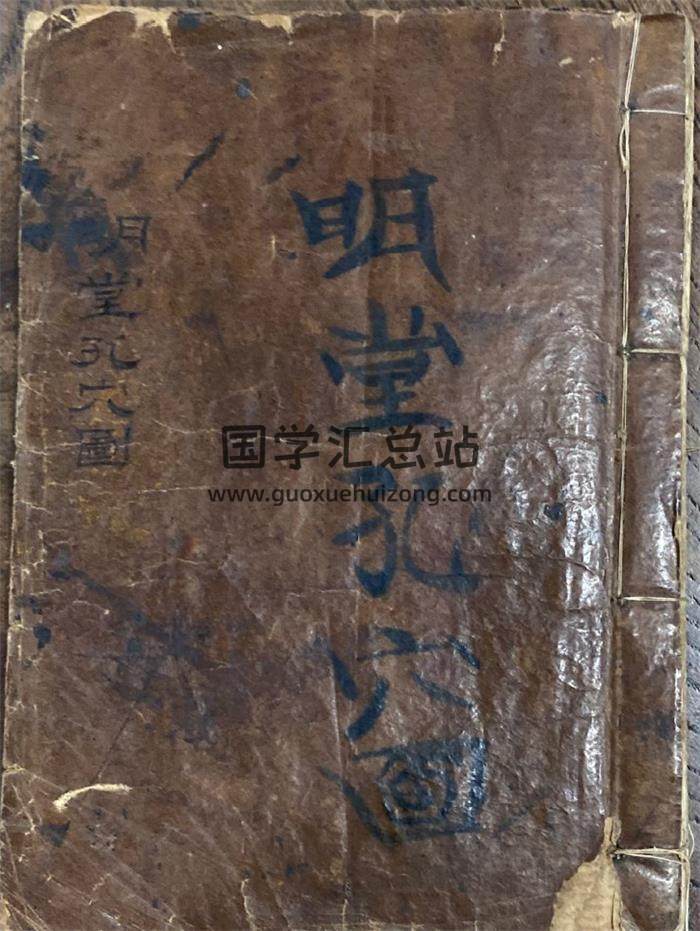 明堂孔穴圖
明堂孔穴圖
国学汇总站
www.guoxuehuizong.com